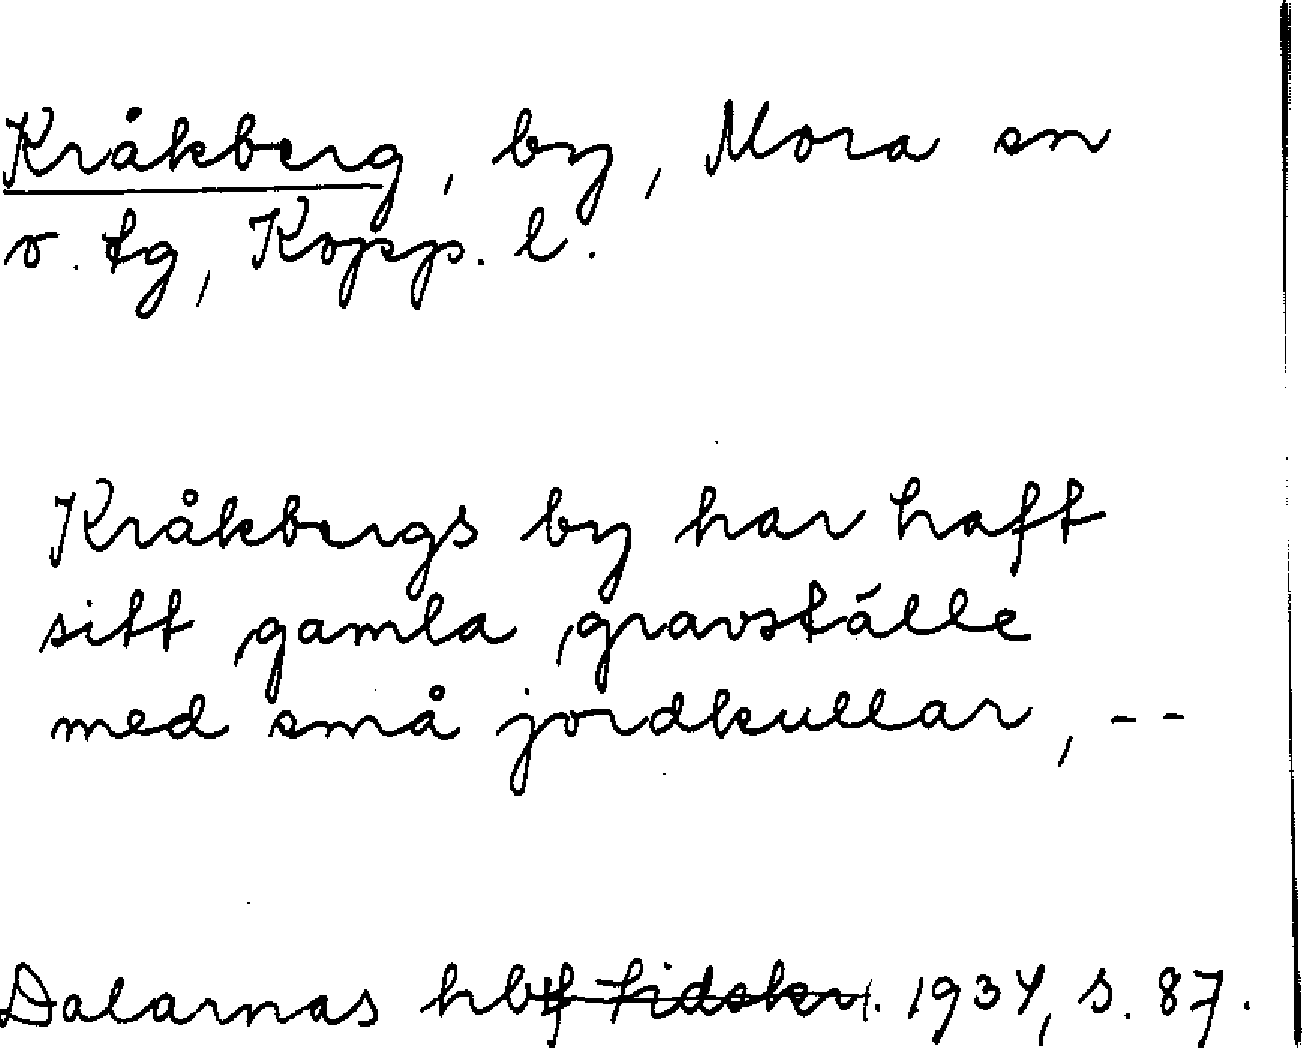 Kråkberg, by, Mora sn
v. tg, Kopp. l.
Kråkbergs by har haft
sitt gamla gravställe
med små jordkullar, --
Dalarnas hbf tidskr. 1937, s. 87.